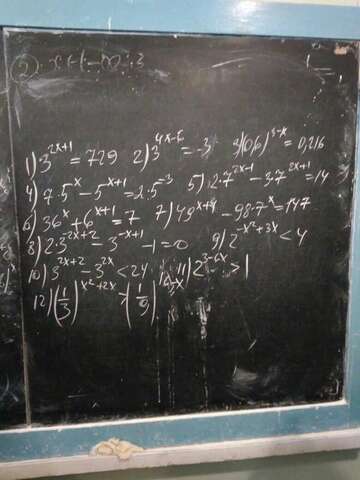 1) 3^{2x+1} = 729 2) 3^{4x-6} = -3 3) (0,6)^{3-x} = 0,216
4) 7·5^x - 5^{x+1} = 2·5^{-3} 5) 2·7^{2x-1} - 3·7^{2x+1} = 14
6) 36^x + 6^{x+1} = 7 7) 49^{x+1} - 98·7^x = 147
8) 2·3^{2x+2} - 3^{-x+1} - 1 = 0 9) 2^{-x^2+3x} < 4
10) 3^{2x+2} - 3^{2x} < 24 11) 2^{3-6x} > 1
12) (1/3)^{x^2+2x} > (1/9)